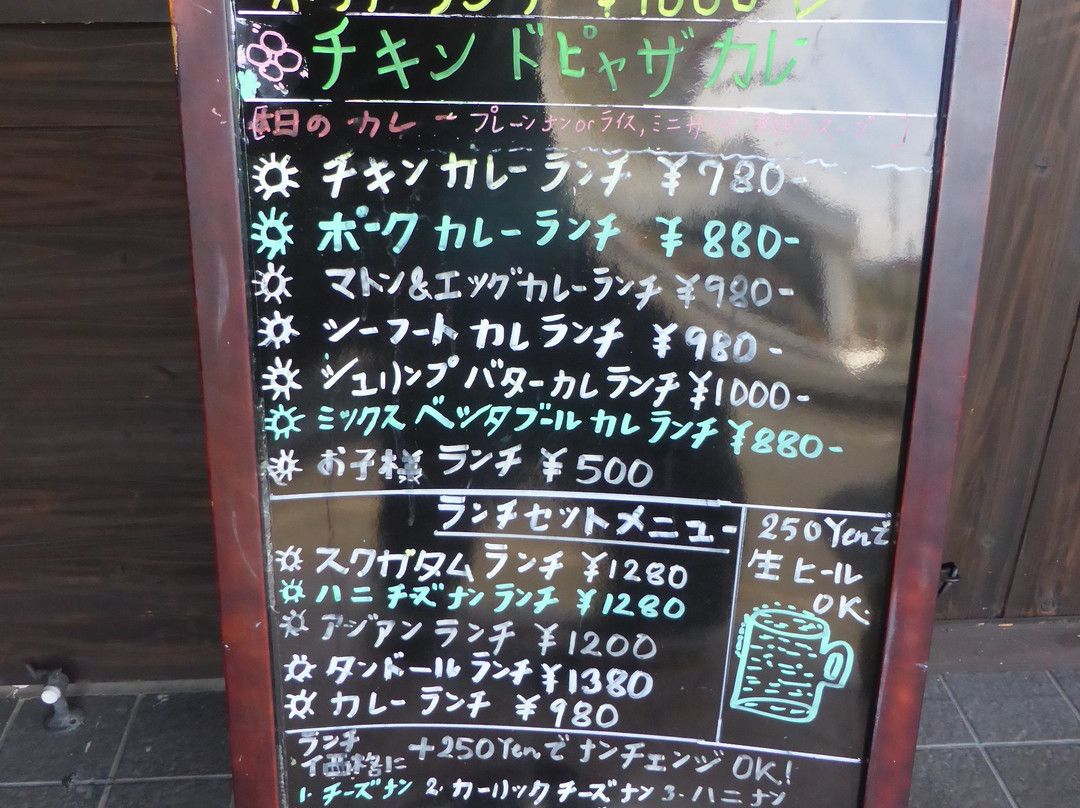 ランチ ¥1000
チキン ドピャザ カレ
本日の カレー プレーンナン or ライス, ミニサ
チキン カレー ランチ ¥780-
ポーク カレー ランチ ¥880-
マトン&エッグカレーランチ ¥980-
シーフート カレ ランチ ¥980-
シュリンプ バター カレ ランチ ¥1000-
ミックス ベッタブール カレ ランチ ¥880-
お子様 ランチ ¥500
ランチセットメニュー
スクガタム ランチ ¥1280
ハニ チーズ ナン ランチ ¥1280
アジアン ランチ ¥1200
タンドール ランチ ¥1380
カレー ランチ ¥980
250 Yenで
生 ビール
OK.
ランチ
価格に +250 Yenで ナンチェンジ OK!
1. チーズナン 2. カーリック チーズナン 3. ハニ ナン